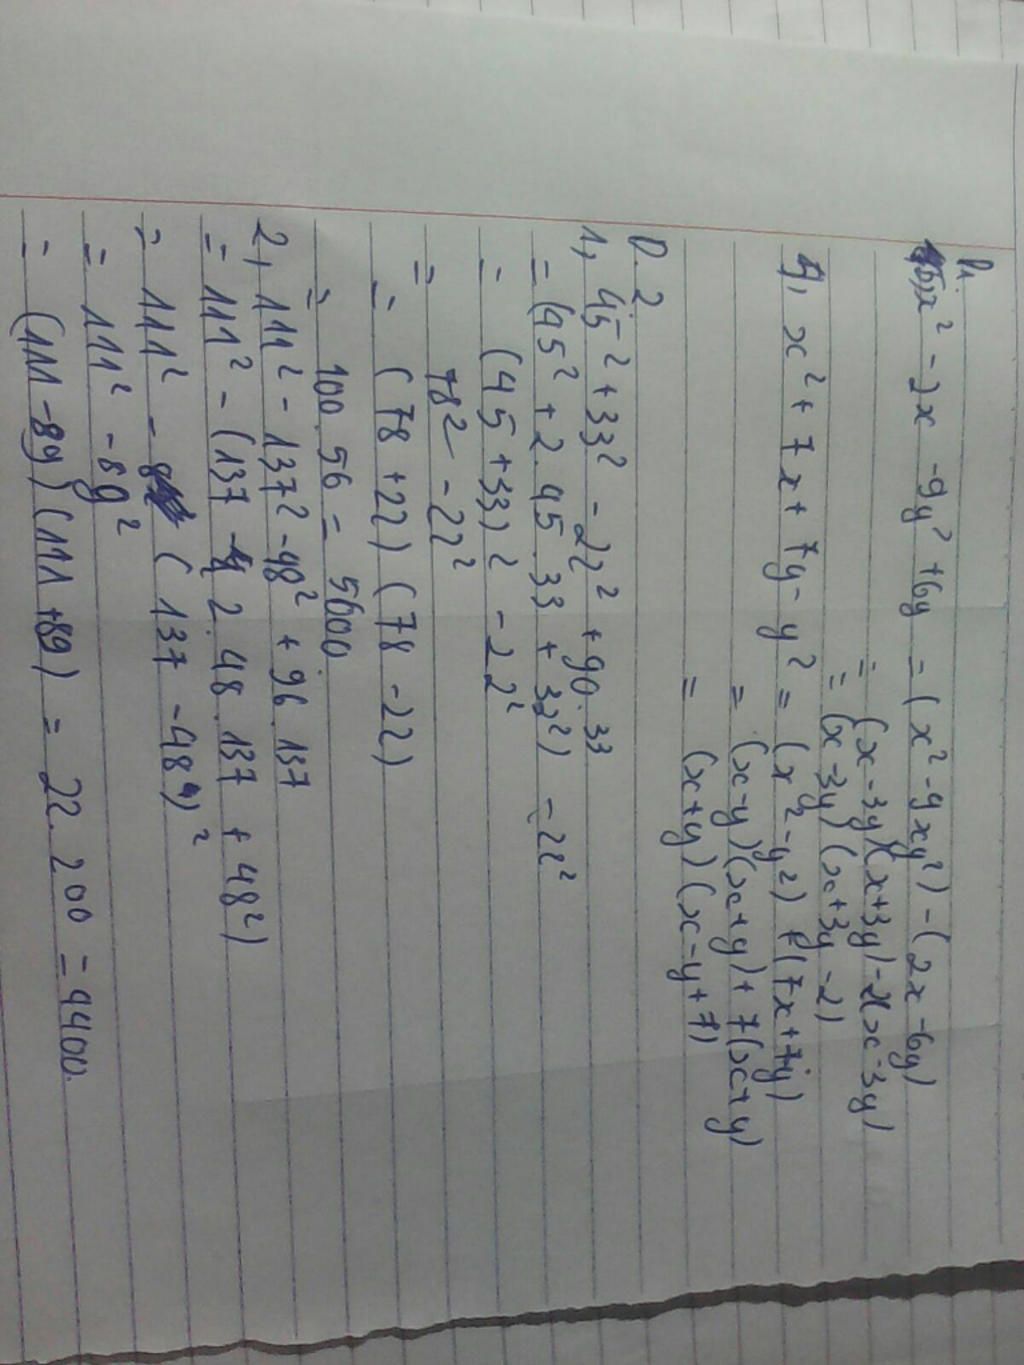 B1.
5, x² - 2x - 9y² + 6y = (x² - 9xy²) - (2x - 6y)
= (x - 3y)(x + 3y) - 2(x - 3y)
= (x - 3y)(x + 3y - 2)
4, x² + 7x + 7y - y² = (x² - y²) + (7x + 7y)
= (x - y)(x + y) + 7(x + y)
= (x + y)(x - y + 7)
B.2
1, 45² + 33² - 22² + 90.33
= (45² + 2.45.33 + 33²) - 22²
= (45 + 33)² - 22²
= 78² - 22²
= (78 + 22)(78 - 22)
= 100.56 = 5600.
2, 111² - 137² - 48² + 96.137
= 111² - (137 - 2.48.137 + 48²)
= 111² - (137 - 48)²
= 111² - 89²
= (111 - 89)(111 + 89) = 22.200 = 4400.